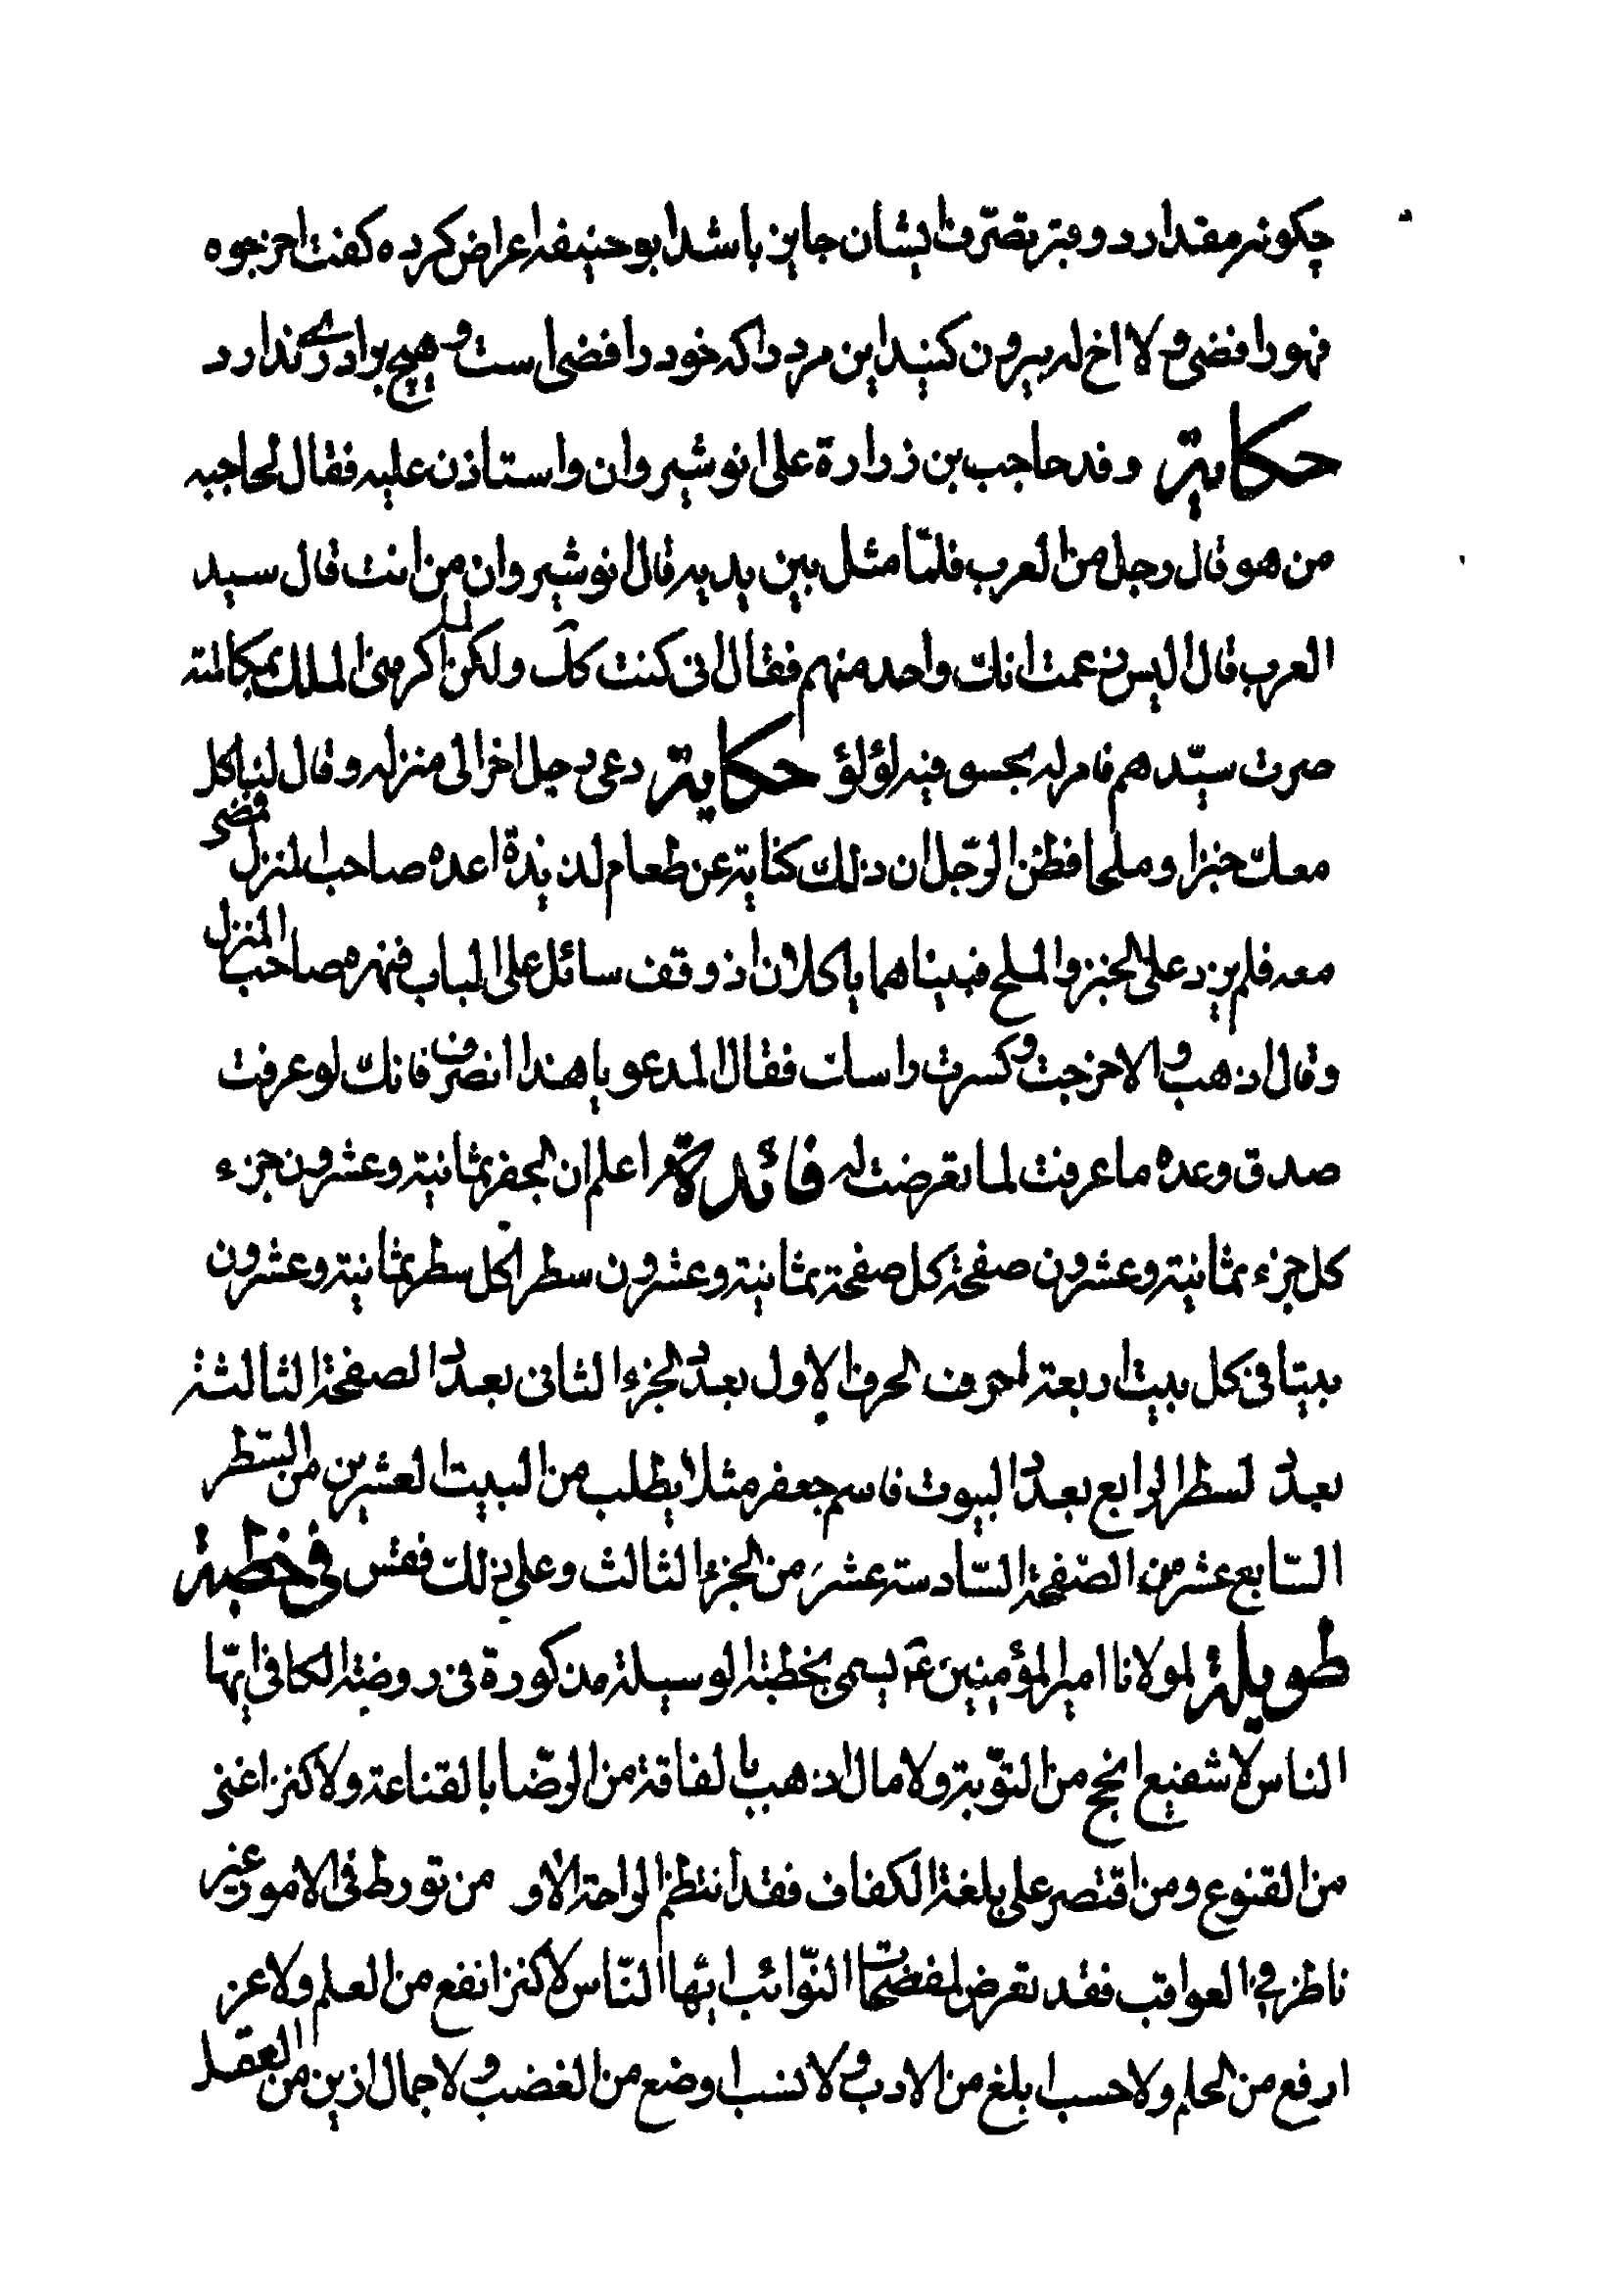 چکونه مقدار دو قبر تصرّف ایشان جایز باشد ابو حنیفه اعراض کرده کفت اخرجوه
فهو رافضی و لا اخ له بیرون کنید این مرد را که خود رافضی است و هیچ برادری ندارد
حکایة وفد حاجب بن زرارة علی انوشیروان واستاذن علیه فقال لحاجبه
من هو قال رجل من العرب فلمّا مثل بین یدیه قال انوشیروان من انت قال سید
العرب قال الیس زعمت انک واحد منهم فقال انی کنت کک ولکن لما اکرمنی الملک بمکالمته
صرت سیّدهم فامر له بحسو فیه لؤلؤ حکایة دعی رجل اخر الی منزله وقال لناکل
معک خبزا وملحا فظن الرّجل ان ذلک کنایة عن طعام لذیذة اعده صاحب المنزل فمضی
معه فلم یزد علی الخبز والملح فبیناهما یاکلان اذ وقف سائل علی الباب فنهره صاحب المنزل
وقال اذهب والا خرجت وکسرت راسک فقال المدعو یا هذا انصرف فانک لو عرفت
صدق وعده ما عرفت لما تعرضت له فائدة اعلم ان الجفر ثمانیة وعشرون جزء
کل جزء ثمانیة وعشرون صفحة کل صفحة ثمانیة وعشرون سطرا کل سطر ثمانیة وعشرون
بیتا فی کل بیت اربعة احرف الحرف الاول بعدد الجزء الثانی بعدد الصفحة الثالثة
بعدد السطر الرابع بعدد البیوت فاسم جعفر مثلا یطلب من البیت العشرین من السّطر
السّابع عشر من الصّفحة السّادسة عشر من الجزء الثالث وعلی ذلک فقس فی خطبة
طویلة لمولانا امیر المؤمنین عَ یسمی بخطبة الوسیلة مذکورة فی روضة الکافی ایّها
الناس لا شفیع انجح من التّوبة ولا مال اذهب بالفاقة من الرّضا بالقناعة ولا کنز اغنی
من القنوع ومن اقتصر علی بلغة الکفاف فقد انتظم الراحة الا و من تورط فی الامور غیر
ناظر فی العواقب فقد تعرض لمفضحات النّوائب ایّها النّاس لا کنز انفع من العلم ولا عز
ارفع من الحلم ولا حسب ابلغ من الادب ولا نسب اوضع من الغضب ولا جمال ازین من العقل